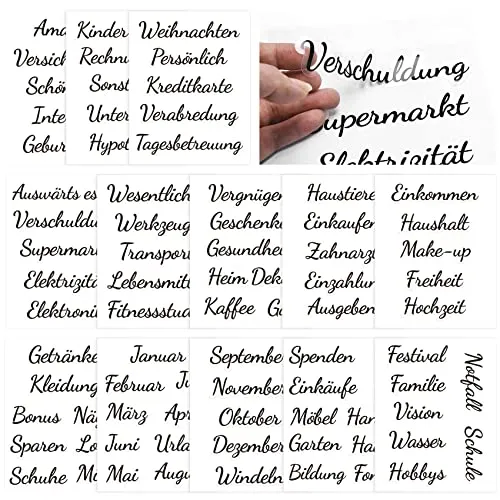 Ama
Versich
Schön
Inte
Gebur
Kinder
Rechnu
Sonst
Unter
Hypot
Weihnachten
Persönlich
Kreditkarte
Verabredung
Tagesbetreuung
Verschuldung
Supermarkt
Elektrizität
Auswärts es
Verschuldu
Supermar
Elektrizitä
Elektroni
Wesentlich
Werkzeug
Transpor
Lebensmitt
Fitnessstud
Vergnüge
Geschenk
Gesundhe
Heim Dek
Kaffee
Haustiere
Einkaufen
Zahnarz
Einzahlun
Ausgeben
Einkommen
Haushalt
Make-up
Freiheit
Hochzeit
Getränke
Kleidung
Bonus Nä
Sparen Lo
Schuhe Mo
Januar
Februar Ju
März Apr
Juni Urla
Mai Augu
September
November
Oktober
Dezember
Windeln
Spenden
Einkäufe
Möbel Han
Garten Ha
Bildung For
Festival
Familie
Vision
Wasser
Hobbys
Notfall
Schule